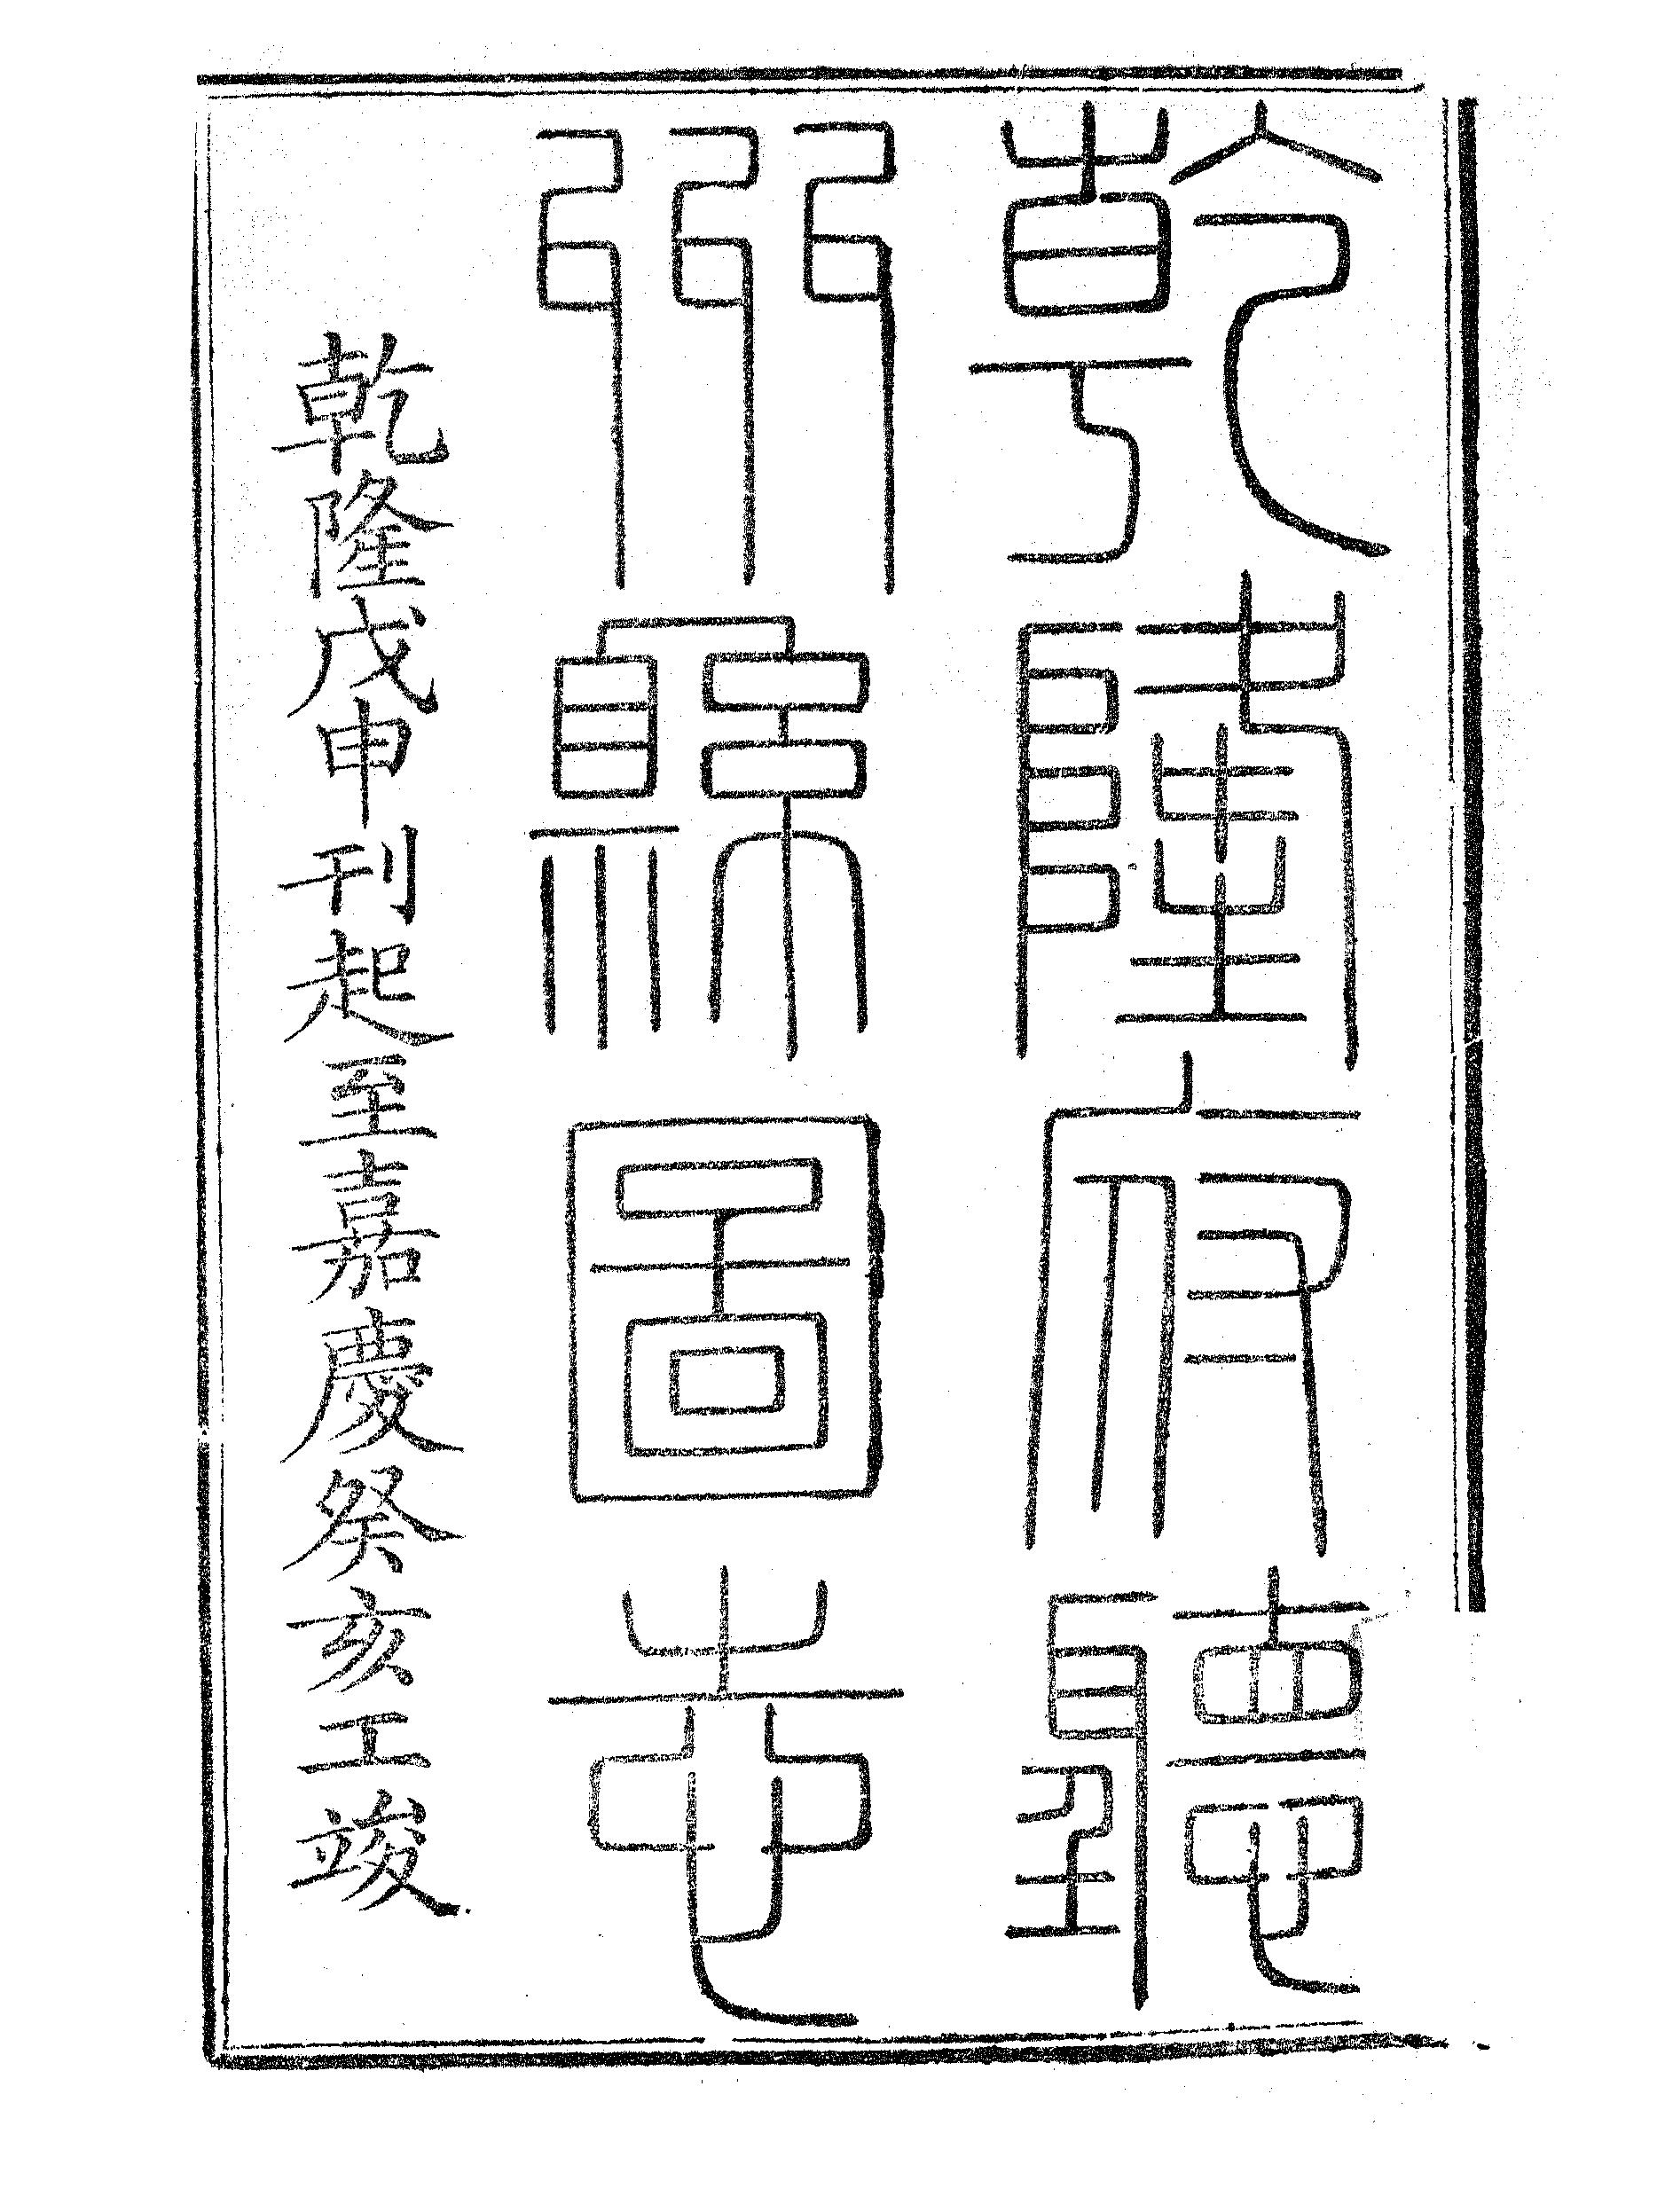 乾隆府聽
州縣圖志
乾隆戊申刊起至嘉慶癸亥工竣